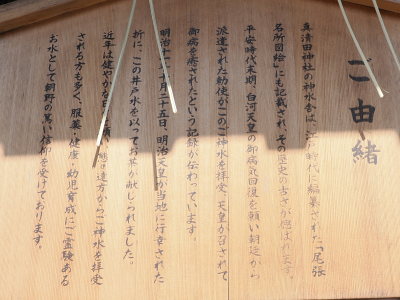 ご由緒
真清田神社の神水舎は、江戸時代に編纂された「尾張
名所図絵」にも記載され、その歴史の古さが偲ばれます。
平安時代末期、白河天皇の御病気回復を願い朝廷から
派遣された勅使がこのご神水を拝受、天皇が召されて
御病を癒されたという記録が伝わっています。
明治十一年十月二十五日、明治天皇が当地に行幸された
折に、この井戸水を以ってお茶が献じられました。
近年は健やかな日々を願い、遠方からご神水を拝受
される方も多く、服薬・健康・幼児育成にご霊験ある
お水として朝野の篤い信仰を受けております。